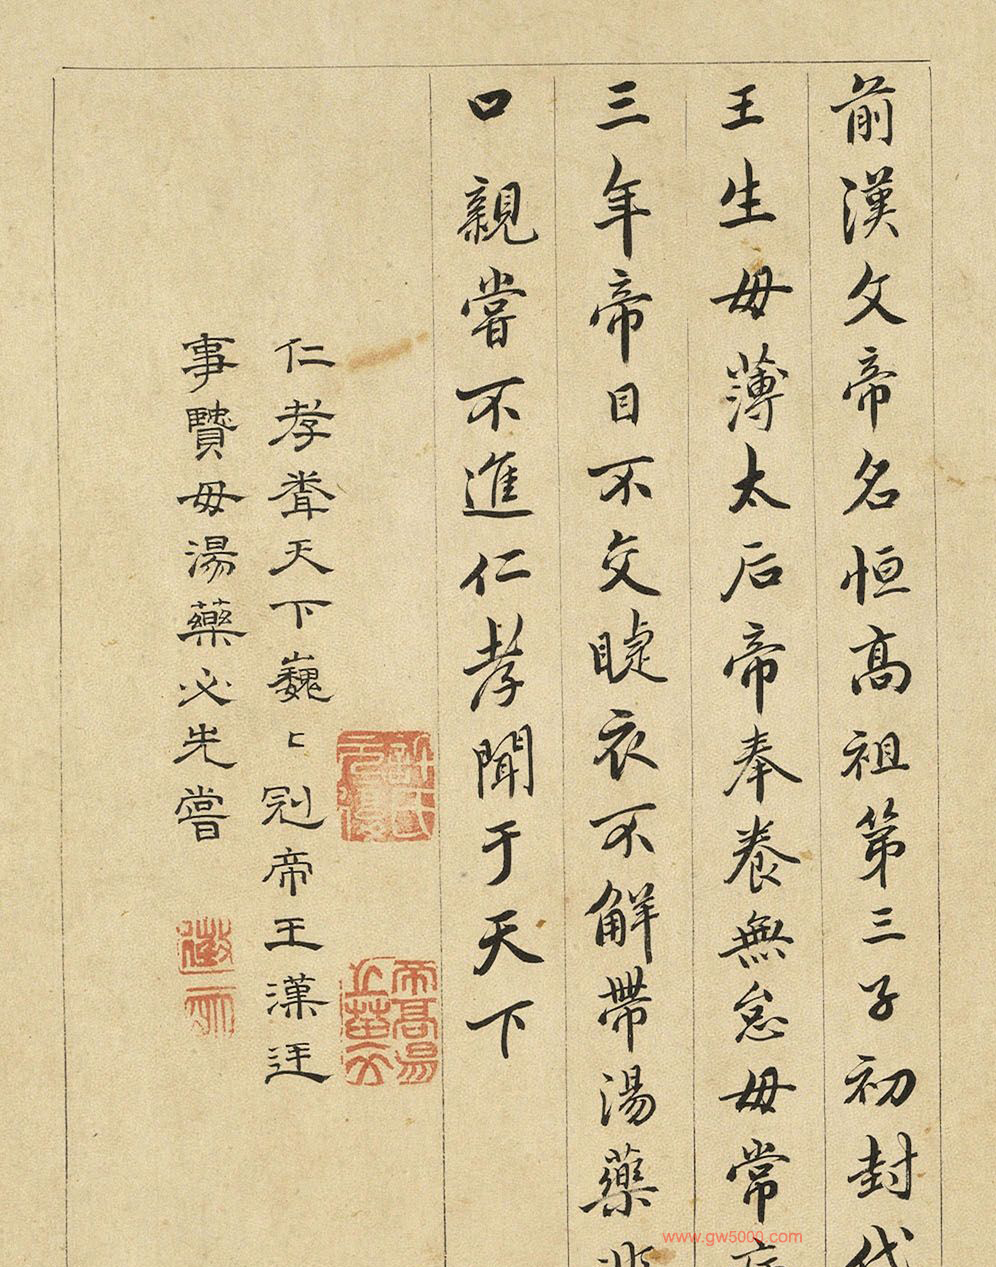 前漢文帝名恒高祖第三子初封代
王生母薄太后帝奉養無怠母常
三年帝目不交睫衣不解帶湯藥非
口親嘗不進仁孝聞于天下
帝高陽之苗裔
仁孝聞天下巍〻冠帝王漢廷
事賢母湯藥必先嘗
徵明
www.gw5000.com